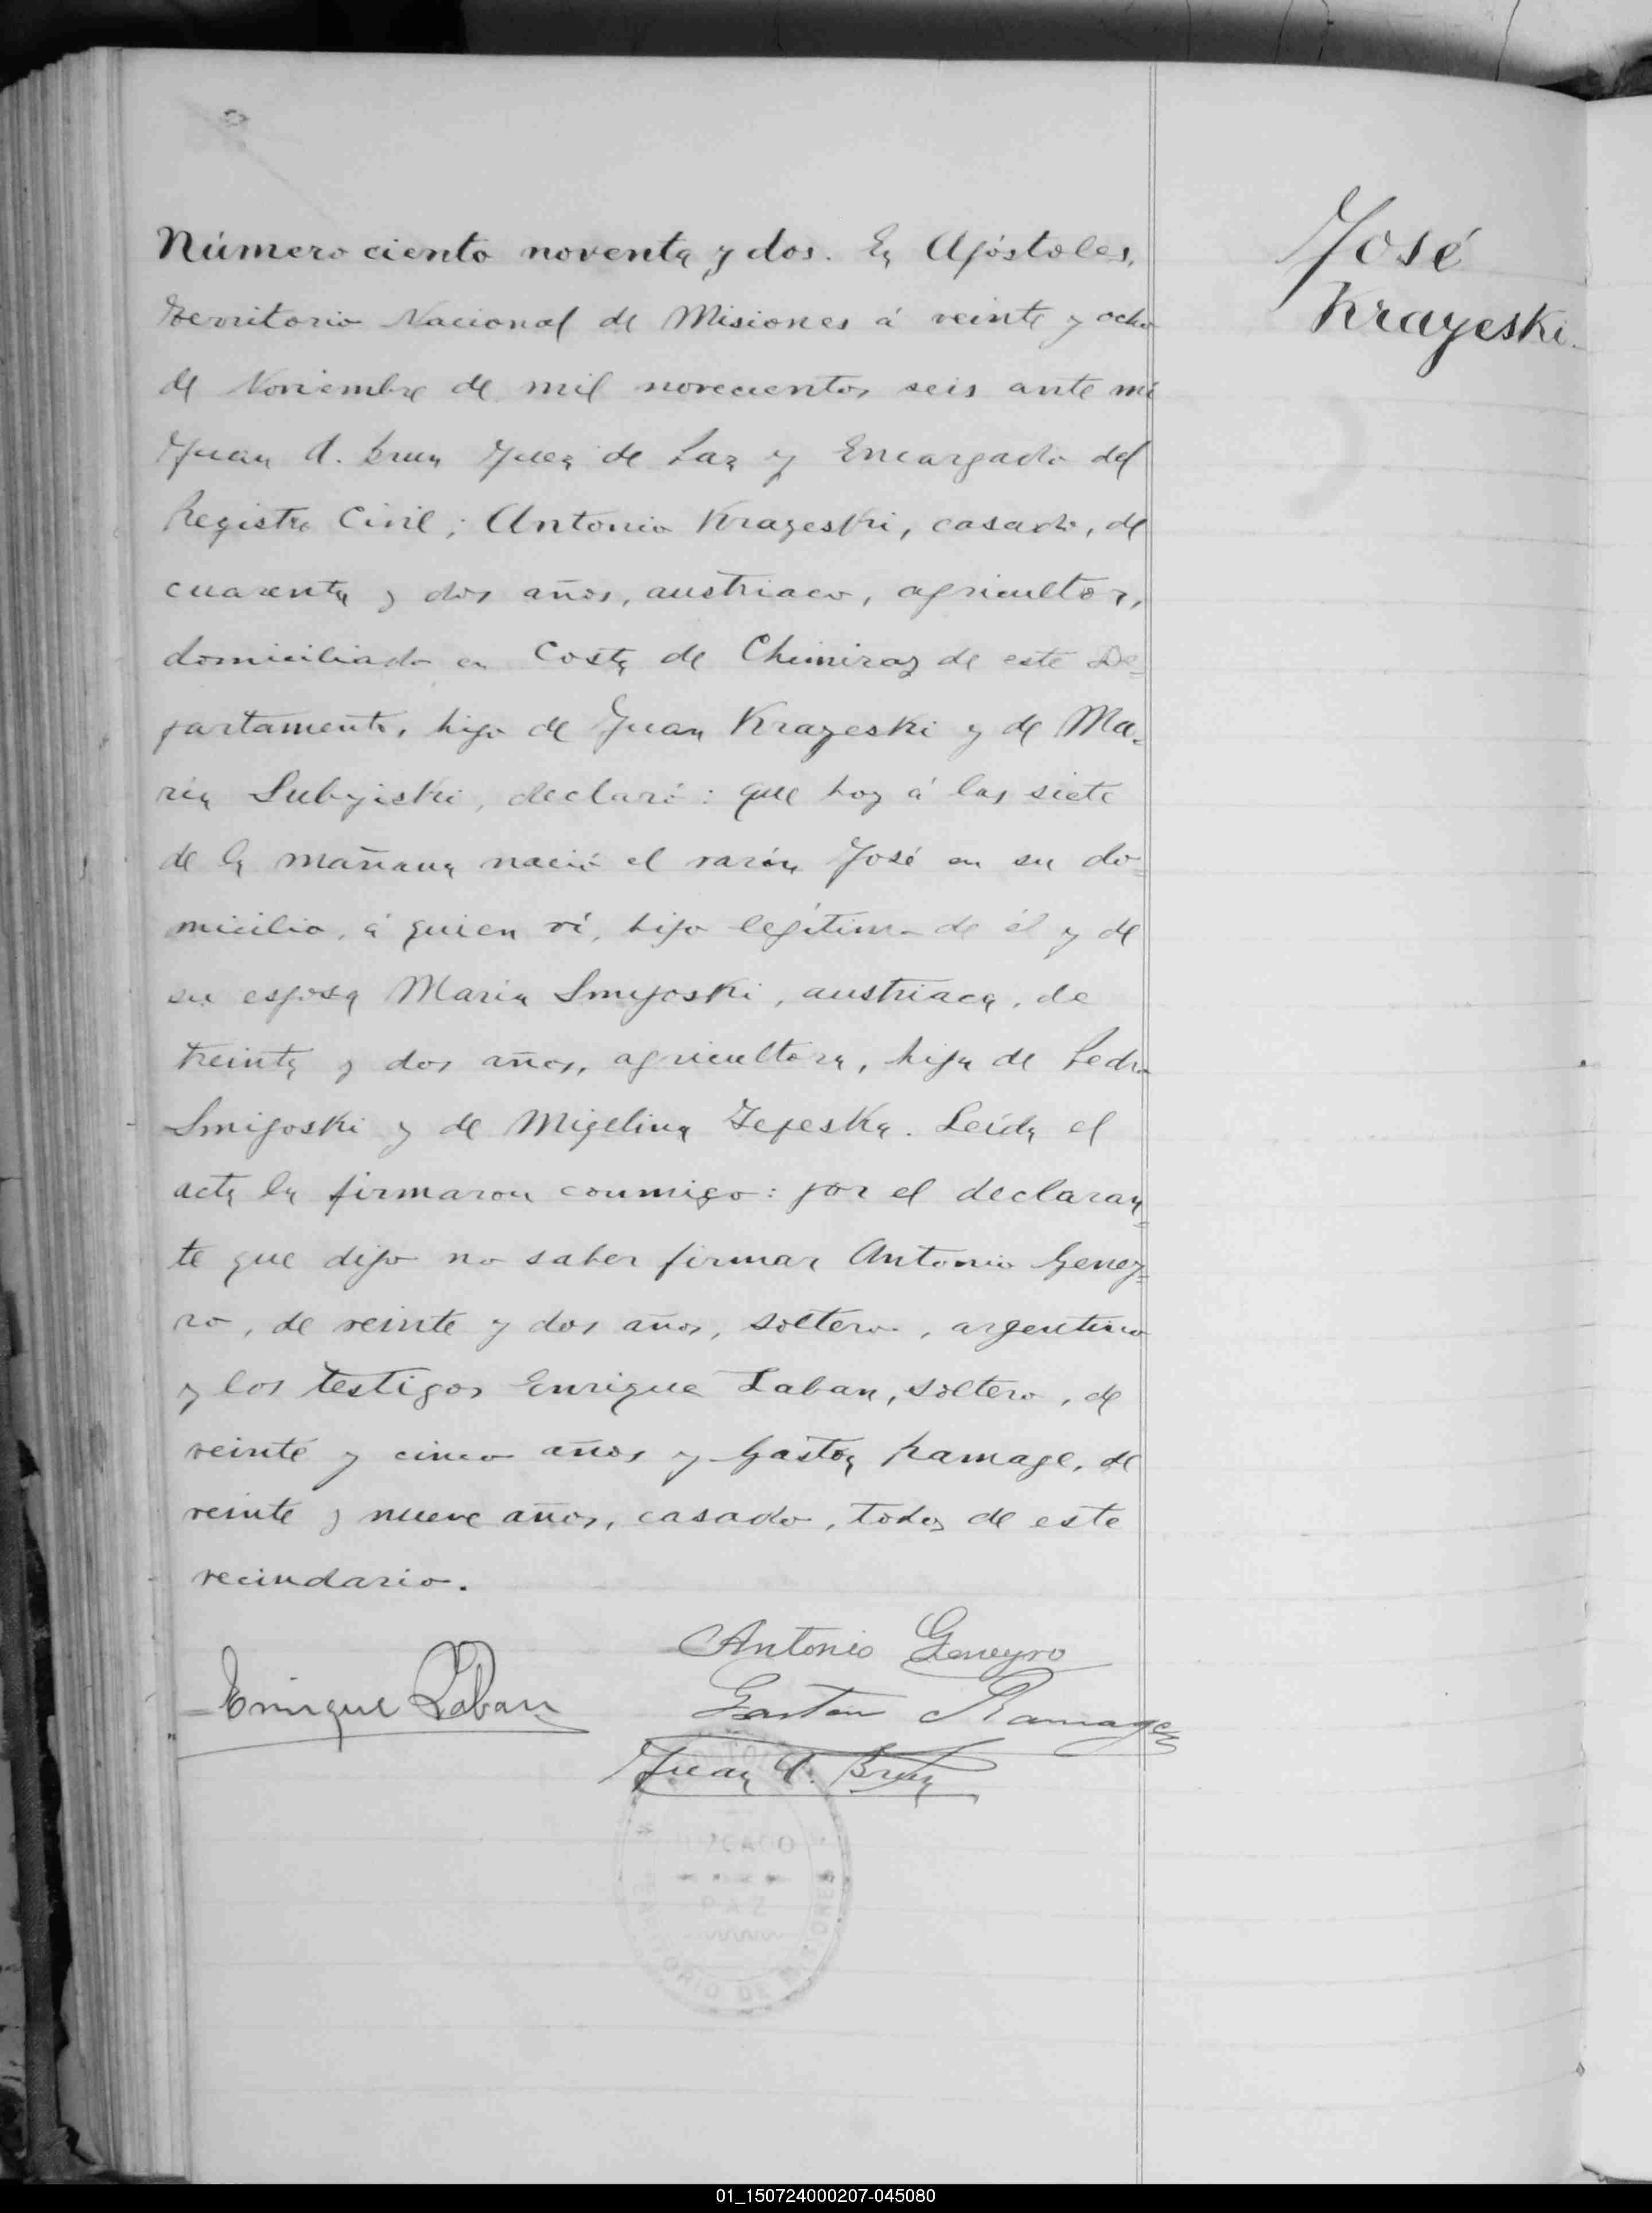 Número ciento noventa y dos. En Apóstoles,
José
Territorio Nacional de Misiones á veinte y ocho
Krayeski.
de Noviembre de mil novecientos seis ante mi
Juan A. Brun Juez de Paz y Encargado del
Registro Civil; Antonio Krayeski, casado, de
cuarenta y dos años, austriaco, agricultor,
domiciliado en Costa de Chimiray de este De=
partamento, hijo de Juan Krayeski y de Ma=
ria Subyiski, declaró: que hoy á las siete
de la mañana nació el varón José en su do=
micilio, á quien ví, hijo legítimo de él y de
su esposa Maria Smyoski, austriaca, de
treinta y dos años, agricultora, hija de Pedro
Smijoski y de Migelina Zepeska. Leída el
acta la firmaron conmigo: por el declaran=
te que dijo no saber firmar Antonio Geney=
ro, de veinte y dos años, soltero, argentino
y los testigos Enrique Laban, soltero, de
veinte y cinco años y Gastón Ramage, de
veinte y nueve años, casado, todos de este
vecindario.
Antonio Geneyro
Enrique Laban
Gaston Ramage
Juan A. Brun
JUZGADO
PAZ
TERRITORIO DE MISIONES
01_150724000207-045080